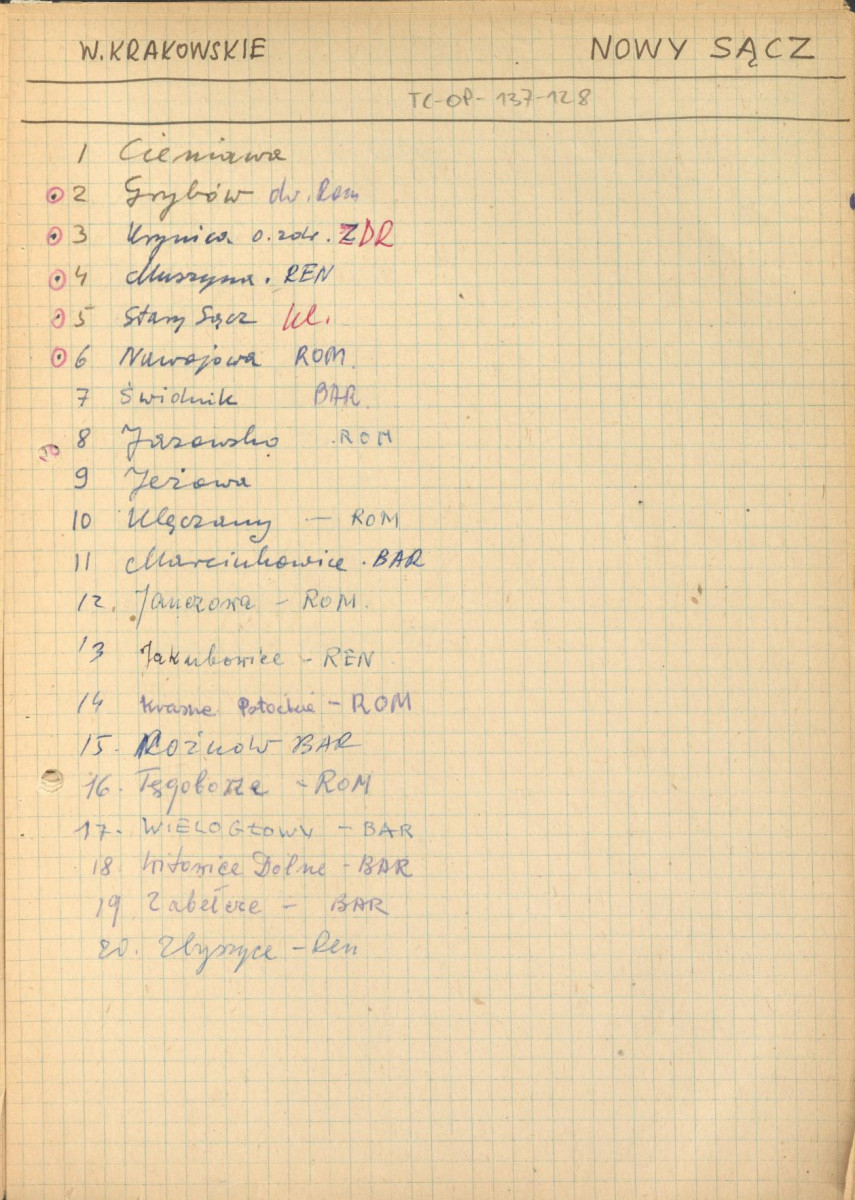 W. KRAKOWSKIE NOWY SĄCZ
TC-OP-137-128
1 Cieniawa
2 Grybów dw. Rom
3 Krynica o. zdr. ZDR
4 Muszyna. REN
5 Stary Sącz kl.
6 Nawojowa ROM.
7 Świdnik BAR.
8 Jazowsko .ROM
9 Jeżowa
10 Klęczany — ROM
11 Marcinkowice. BAR
12. Janczowa - ROM.
13 Jakubowice - REN
14 Krasne Potockie - ROM
15. ROŻNÓW BAR
16. Tęgoborze - ROM
17. WIELOGŁOWY - BAR
18 Witowice Dolne - BAR
19 Zabełcze - BAR
20. Zbyszyce - Ren